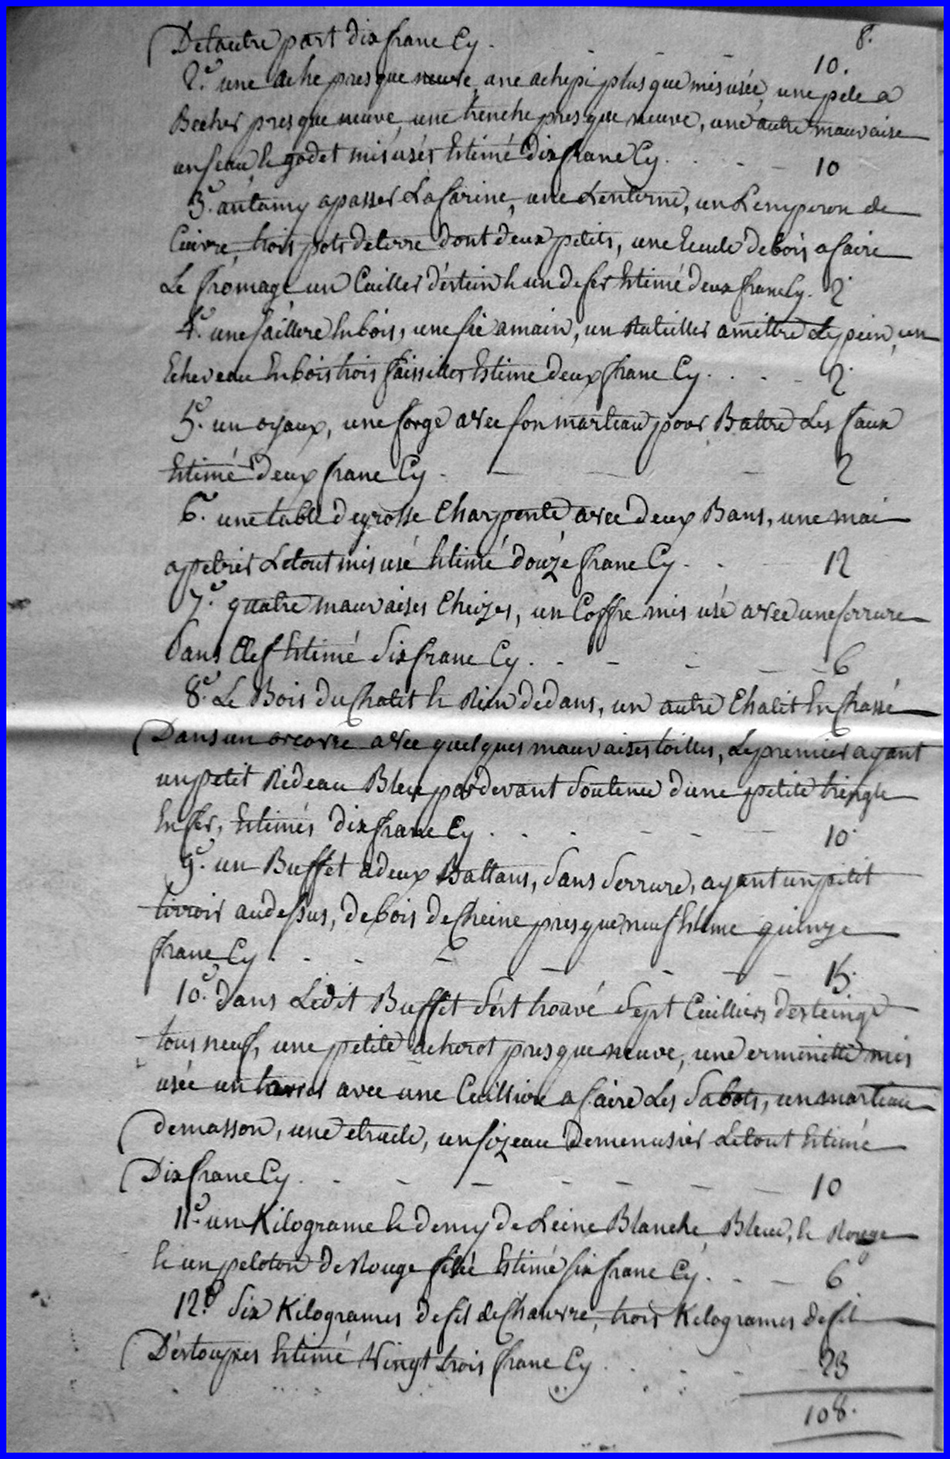 8.
De lautre part dix franc Cy. 10.
2.° une ache presque neuve, une achepi plus que mis usée, une pele a
Becher presque neuve, une trenche presque neuve, une autre mauvaise
un seau le godet mis usés Estimé dix franc Cy. 10
3.° un tamy a passer La farine, une Lenterne, un Lemperon de
Cuivre, trois pots de terre dont deux petits, une Ecuele de bois a faire
Le fromage un Cuiller d'estein & un de fer Estimé deux franc Cy. 2
4.° une saillere En bois, une sie a main, un Ratellier a mettre Le pein, un
Echeveau En bois trois faisselles Estimé deux franc Cy. 2.
5.° un oyaux, une forge avec son marteau pour Battre Les faux
Estimé deux franc Cy. 2
6.° une table de grosse Charpente avec deux Bans, une mai
a petrir Le tout mis usé Estimé douze franc Cy. 12
7.° quatre mauvaises Cheizes, un Coffre mis usé avec une serrure
Sans Clef Estimé Six franc Cy. 6
8.° Le Bois du Chalit & Rien dedans, un autre Chalit En Chassé
Dans un arcorve avec quelques mauvaises toilles, Le premier ayant
un petit Rideau Bleu par devant Soutenu d'une petite tringle
En fer, Estimés dix franc Cy. 10.
9.° un Buffet a deux Battans, Sans Serrure, ayant un petit
tirroir au dessus, de bois de Cheine presque neuf Estime quinze
franc Cy. 15.
10.° dans Ledit Buffet s'est trouvé Sept Cuilliers desteing
tous neuf, une petite acherot presque neuve, une erminette mis
usée un avec une Cuilliere a faire Les Sabots, un marteau
de masson, une etruele, un sizeau de menusier Le tout Estimé
Dix franc Cy. 10
11.° un Kilograme & demy de Leine Blanche Bleue, & Rouge
& un peloton de Rouge filé Estimé six franc Cy. 6
12.° Six Kilogrames de fil de Chanvre, trois Kilogrames de fil
D'estoupes Estimé Vingt trois franc Cy. 23
108.